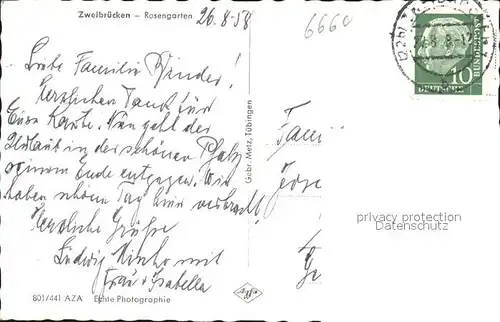 Zweibrücken – Rosengarten
26.8.58
666c
Liebe Familie Kinder!
Herzlichen Dank für
Eure Karte. Nun geht der
Urlaub in der schönen Pfalz
seinem Ende entgegen. Wir
haben schöne Tage hier verbracht!
Herzliche Grüße
Ludwig
Frau Isabella
Gebr. Metz, Tübingen
DEUTSCHE
BUNDESPOST
10
Fam
privacy protection
Datenschutz
801/441 AZA Echte Photographie